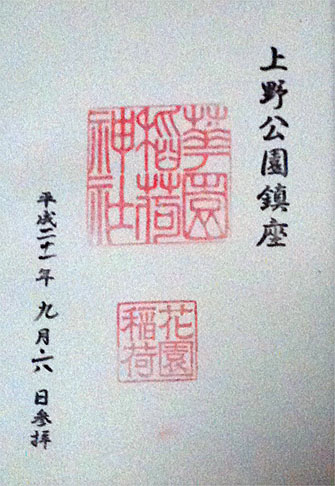 上野公園鎮座
華園
稲荷
神社
花園
稲荷
平成二十一年九月六日参拝